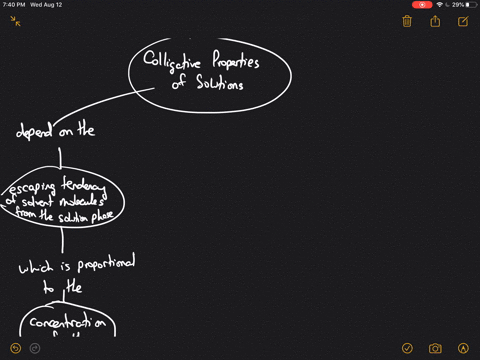 7:40 PM Wed Aug 12
29%
Colligative Properties
of Solutions
depend on the
escaping tendency
of solvent molecules
from the solution phase
which is proportional
to the
concentration